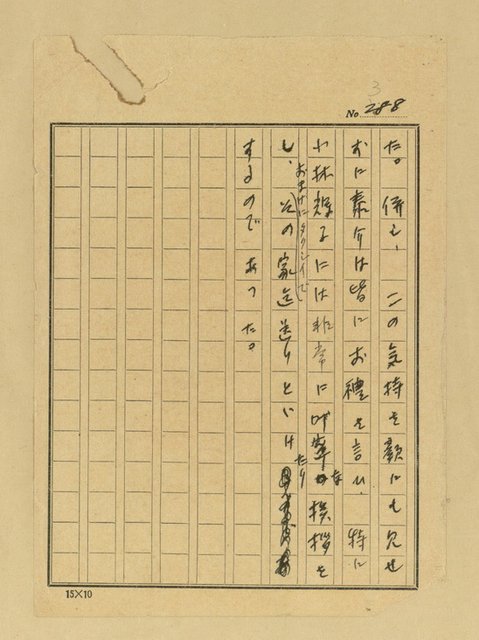 3
No. 288
た。併し、この気持を顔にも見せ
ずに泰介は皆にお禮を言ひ、特に
小林姪子には非常に叮寧な挨拶を
し、おまけにタクシイでその家迄送りとどけたり
するのであった。
15×10